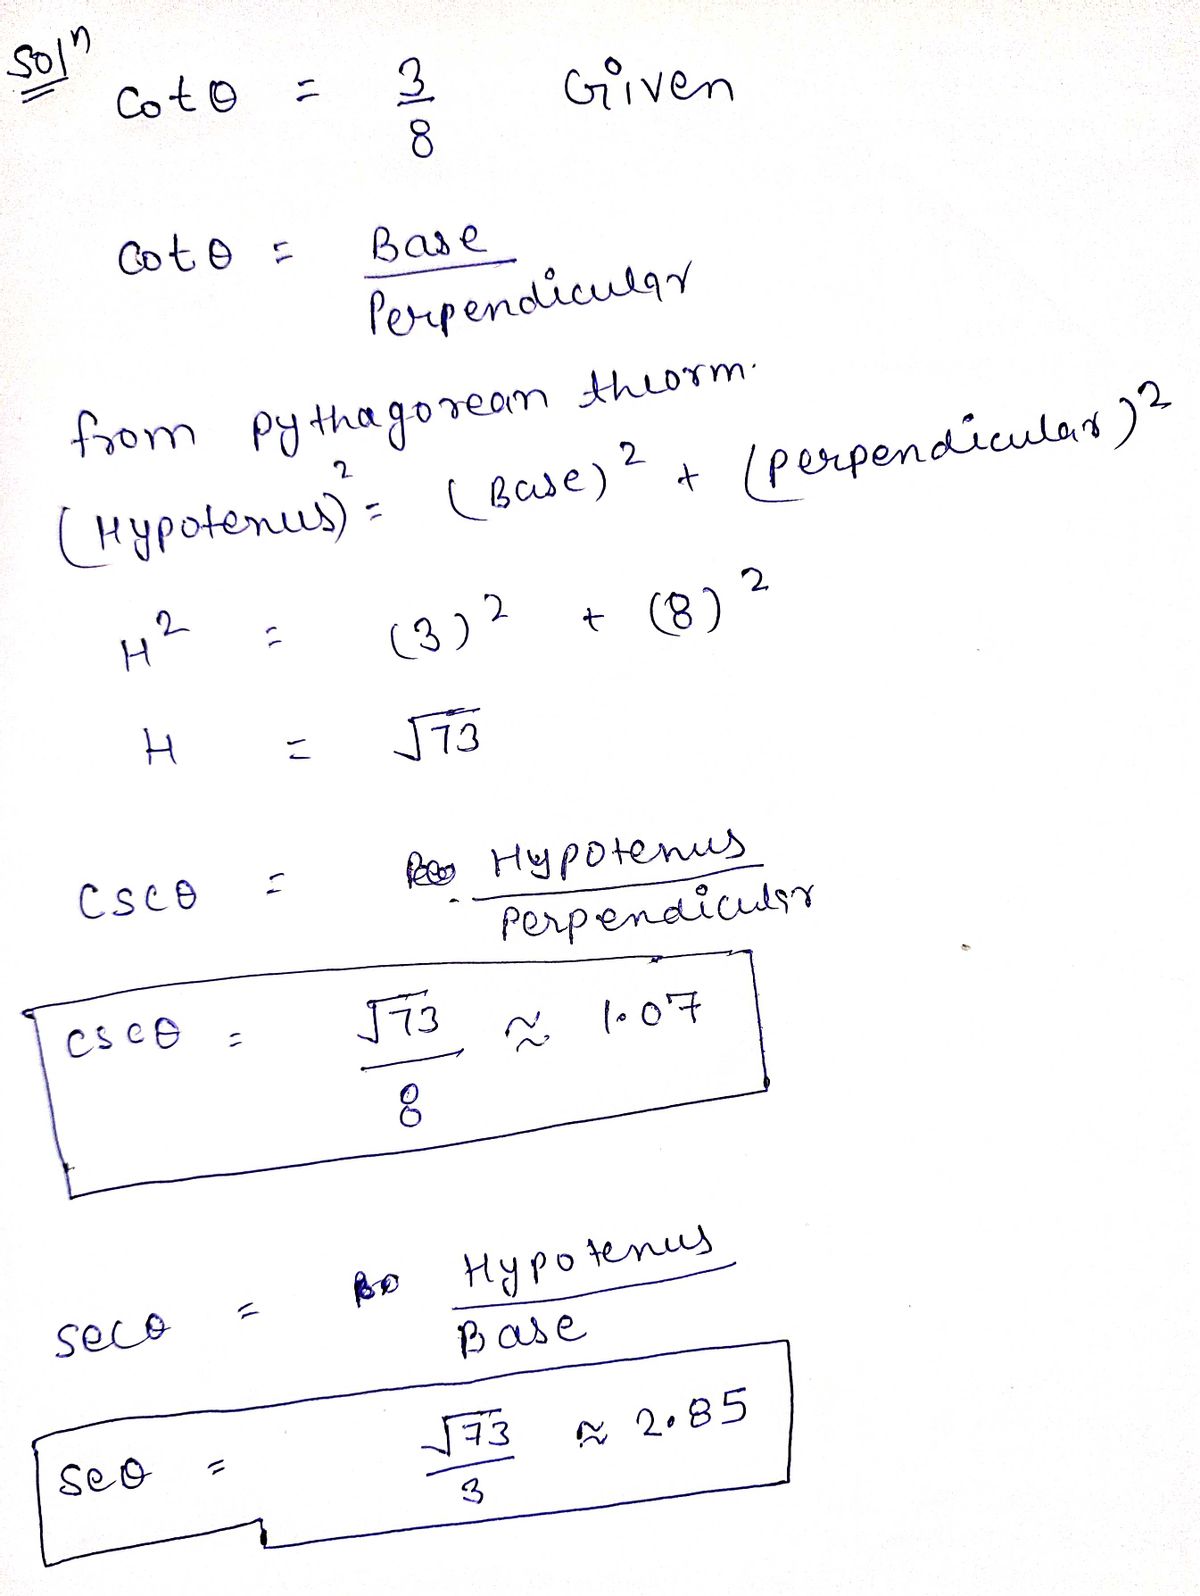 Solⁿ
Cot θ = 3/8 Given
Cot θ = Base/Perpendicular
from Pythagorean theorm.
(Hypotenus)² = (Base)² + (Perpendicular)²
H² = (3)² + (8)²
H = √73
Cscθ = Hypotenus/Perpendicular
Cscθ = √73/8 ≈ 1.07
Secθ = Hypotenus/Base
Seθ = √73/3 ≈ 2.85